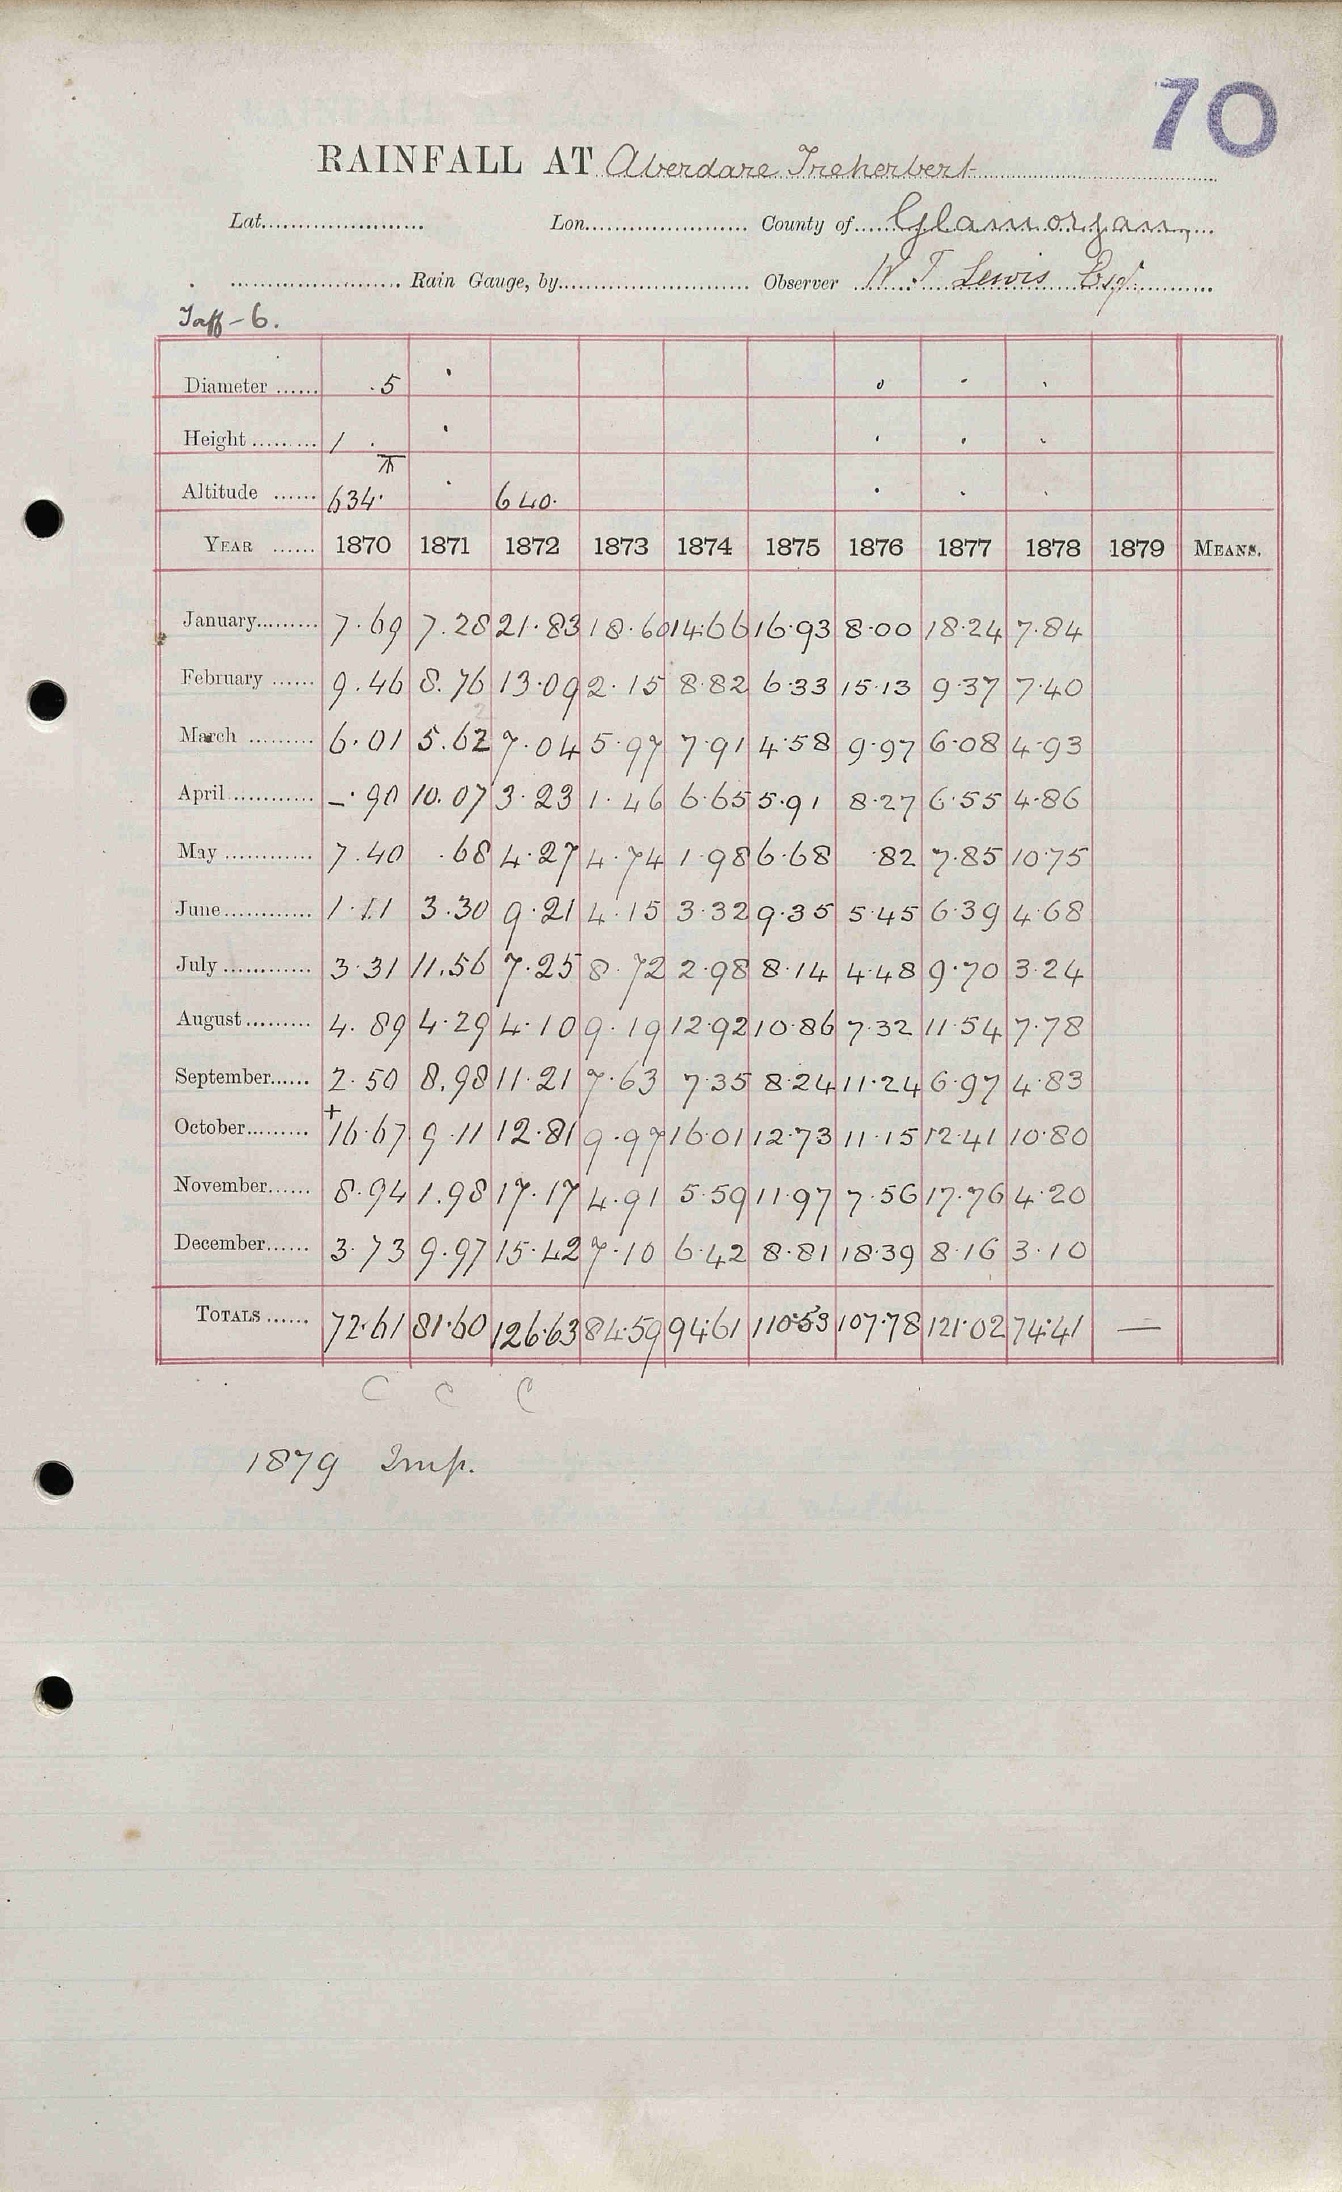 70
RAINFALL AT Aberdare Treherbert
Lat. Lon. County of Glamorgan
Rain Gauge, by Observer W T Lewis Esq.
Taff - 6.
Diameter 5
Height 1
Altitude 634. 640.
YEAR 1870 1871 1872 1873 1874 1875 1876 1877 1878 1879 MEANS.
January 7.69 7.28 21.83 18.60 14.66 16.93 8.00 18.24 7.84
February 9.46 8.76 13.09 2.15 8.82 6.33 15.13 9.37 7.40
March 6.01 5.62 7.04 5.97 7.91 4.58 9.97 6.08 4.93
April -.90 10.07 3.23 1.46 6.65 5.91 8.27 6.55 4.86
May 7.40 .68 4.27 4.74 1.98 6.68 .82 7.85 10.75
June 1.11 3.30 9.21 4.15 3.32 9.35 5.45 6.39 4.68
July 3.31 11.56 7.25 8.72 2.98 8.14 4.48 9.70 3.24
August 4.89 4.29 4.10 9.19 12.92 10.86 7.32 11.54 7.78
September 2.50 8.98 11.21 7.63 7.35 8.24 11.24 6.97 4.83
October +16.67 9.11 12.81 9.97 16.01 12.73 11.15 12.41 10.80
November 8.94 1.98 17.17 4.91 5.59 11.97 7.56 17.76 4.20
December 3.73 9.97 15.42 7.10 6.42 8.81 18.39 8.16 3.10
TOTALS 72.61 81.60 126.63 84.59 94.61 110.53 107.78 121.02 74.41 —
C C C
1879 Imp.